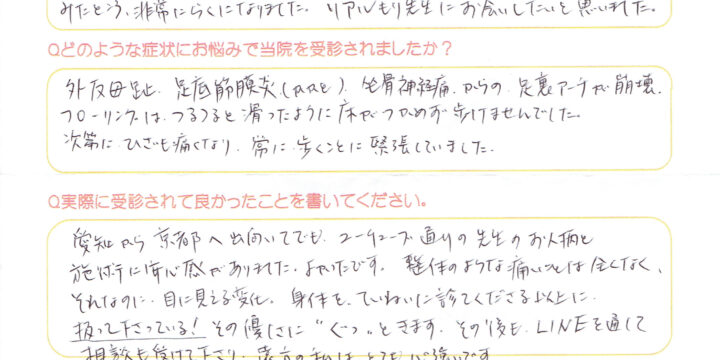 みたところ、非常にらくになりました。リアルもり先生にお会いしたいと思いました。
Qどのような症状にお悩みで当院を受診されましたか？
外反母趾、足底筋膜炎(かかと)、坐骨神経痛、からの足裏アーチが崩壊、
フローリングは、つるつると滑ったように床がつかめず歩けませんでした。
次第にひざも痛くなり、常に歩くことに緊張していました。
Q実際に受診されて良かったことを書いてください。
愛知から京都へ出向いてでも、ユーチューブ通りの先生のお人柄と
施術に安心感がありました。よかったです。整体のような痛いことは全くなく、
それなのに、目に見える変化。身体を、ていねいに診てくださる以上に
扱って下さっている！その優しさに"ぐっ"ときます。その後も、LINEを通して
相談も受けて下さり、遠方の私は、とても心強いです